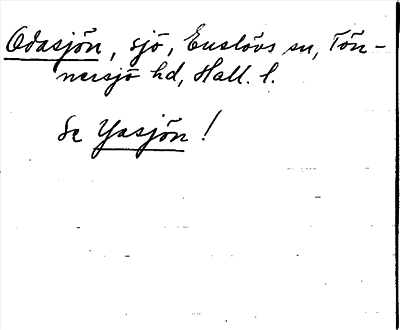 Odasjön, sjö, Enslövs sn, Tön-
nersjö hd, Hall. l.
Se Yasjön!